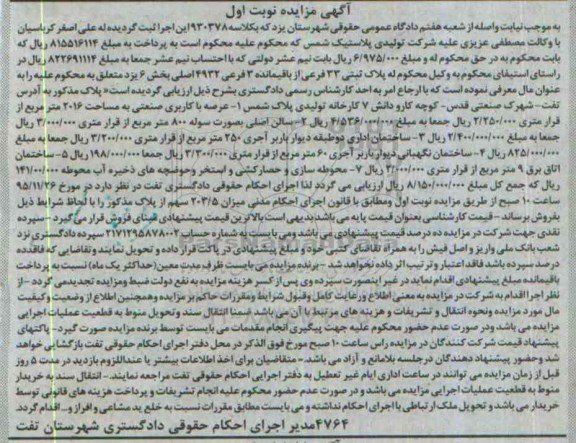 آگهی مزایده نوبت اول
به موجب نیابت واصله از شعبه هفتم دادگاه عمومی حقوقی شهرستان یزد که بکلاسه ۹۳۰۳۷۸ این اجرا ثبت گردیده له علی اصغر کرباسیان
با وکالت مصطفی عزیزی علیه شرکت تولیدی پلاستیک شمس که محکوم علیه محکوم است به پرداخت به مبلغ ۸۱۵۵۱۶۱۱۴ ریال که
بابت محکوم به در حق محکوم له و مبلغ ۶/۹۷۵/۰۰۰ ریال بابت نیم عشر دولتی که با احتساب نیم عشر جمعا به مبلغ ۸۲۲۶۹۱۱۱۴ ریال در
راستای استیفای محکوم به وکیل محکوم له پلاک ثبتی ۳۳ فرعی از باقیمانده ۳ فرعی ۴۹۳۲ اصلی بخش ۶ یزد متعلق به محکوم علیه را به
عنوان مال معرفی نموده است که با ارجاع امر به احد کارشناس رسمی دادگستری بشرح ذیل ارزیابی گردیده است« پلاک مذکور به آدرس
تفت- شهرک صنعتی قدس- کوچه کارو دانش ۷ کارخانه تولیدی پلاک شمس ۱- عرصه با کاربری صنعتی به مساحت ۲۰۱۶ متر مربع از
قرار متری ۲/۲۵۰/۰۰۰ ریال جمعا به مبلغ ۴/۵۳۶/۰۰۰/۰۰۰ ریال ۲- سالن اصلی بصورت سوله ۸۰۰ متر مربع از قرار متری ۳/۰۰۰/۰۰۰ ریال
جمعا به مبلغ ۲/۴۰۰/۰۰۰/۰۰۰ ریال ۳- ساختمان اداری دوطبقه دیوار باربر آجری ۲۵۰ متر مربع از قرار متری ۳/۲۰۰/۰۰۰ ریال جمعا به مبلغ
۸۲۵/۰۰۰/۰۰۰ ریال ۴- ساختمان نگهبانی دیوار باربر آجری ۶۰ متر مربع از قرار متری ۳/۳۰۰/۰۰۰ ریال جمعا ۱۹۸/۰۰۰/۰۰۰ ریال ۵- ساختمان
اتاق برق ۹ متر مربع از قرار متری ۳/۰۰۰/۰۰۰ ریال ۷- محوطه سازی و حصارکشی و استخر وحوضچه های ذخیره آب محوطه ۱۴۱/۰۰۰/۰۰۰
ریال که جمع کل مبلغ ۸/۱۵۰/۰۰۰/۰۰۰ ریال ارزیابی می گردد لذا اجرای احکام حقوقی دادگستری تفت در نظر دارد در مورخ ۹۵/۱۱/۲۶
ساعت ۱۰ صبح از طریق مزایده نوبت اول ومطابق با قانون اجرای احکام مدنی میزان ۲۰۳/۵ سهم از پلاک مذکور را با لحاظ شرایط ذیل
بفروش برساند - قیمت کارشناسی بعنوان قیمت پایه می باشد بدیهی است بالاترین قیمت پیشنهادی مبنای فروش قرار می گیرد - سپرده
نقدی جهت شرکت در مزایده ده درصد قیمت پیشنهادی می باشد ومی بایست به شماره حساب ۲۱۷۱۲۹۵۸۷۸۰۰۲ سپرده دادگستری نزد
شعب بانک ملی واریز و اصل فیش را به همراه تقاضای کتبی خود و مبلغ پیشنهادی در پاکت قرار داده و تحویل نمایند وتقاضایی که فاقد ده
درصد سپرده باشد فاقد اعتبار وترتیب اثر داده نخواهد شد - برنده مزایده می بایست ظرف مدت معین(حداکثر یک ماه) نسبت به پرداخت
باقیمانده مبلغ پیشنهادی اقدام نماید در غیر اینصورت سپرده وی پس از کسر هزینه مزایده به نفع دولت ضبط ومزایده تجدیدمی گردد - از
نظر اجرا اقدام به شرکت در مزایده به معنی اطلاع ورعایت کامل وقبول شرایط ومقررات حاکم بر مزایده وهمچنین اطلاع از وضعیت وکیفیت
مال مورد مزایده ونحوه انتقال و تشریفات و هزینه های مرتبط با آن می باشد ضمنا انتقال سند وتحویل منوط به قطعیت عملیات اجرایی
مزایده می باشد ودر صورت عدم حضور محکوم علیه جهت پیگیری انجام مقدمات می بایست توسط برنده مزایده صورت گیرد- پاکتهای
پیشنهاد قیمت شرکت کنندگان در مزایده راس ساعت ۱۰ صبح مورخ فوق الذکر در محل دفتر اجرای احکام حقوقی تفت بازگشایی خواهد
شد وحضور پیشنهاد دهندگان درجلسه بلامانع و آزاد می باشد- متقاضیان برای اخذ اطلاعات بیشتر یا عنداللزوم بازدید در مدت ۵ روز
قبل از زمان مزایده می توانند در ساعت اداری ایام غیر تعطیل به دفتر اجرایی احکام حقوقی تفت مراجعه نمایند.- انتقال سند به خریدار
منوط به قطعیت عملیات اجرایی مزایده می باشد و در صورت عدم حضور محکوم علیه انجام تشریفات و پرداخت هزینه های قانونی توسط
خریدار می باشد و تحویل ملک ارتباطی با اجرای احکام نداشته و می بایست مطابق مقررات نسبت به خلع ید مشاعی و افراز و... اقدام گردد.
۴۷۶۴مدیر اجرای احکام حقوقی دادگستری شهرستان تفت